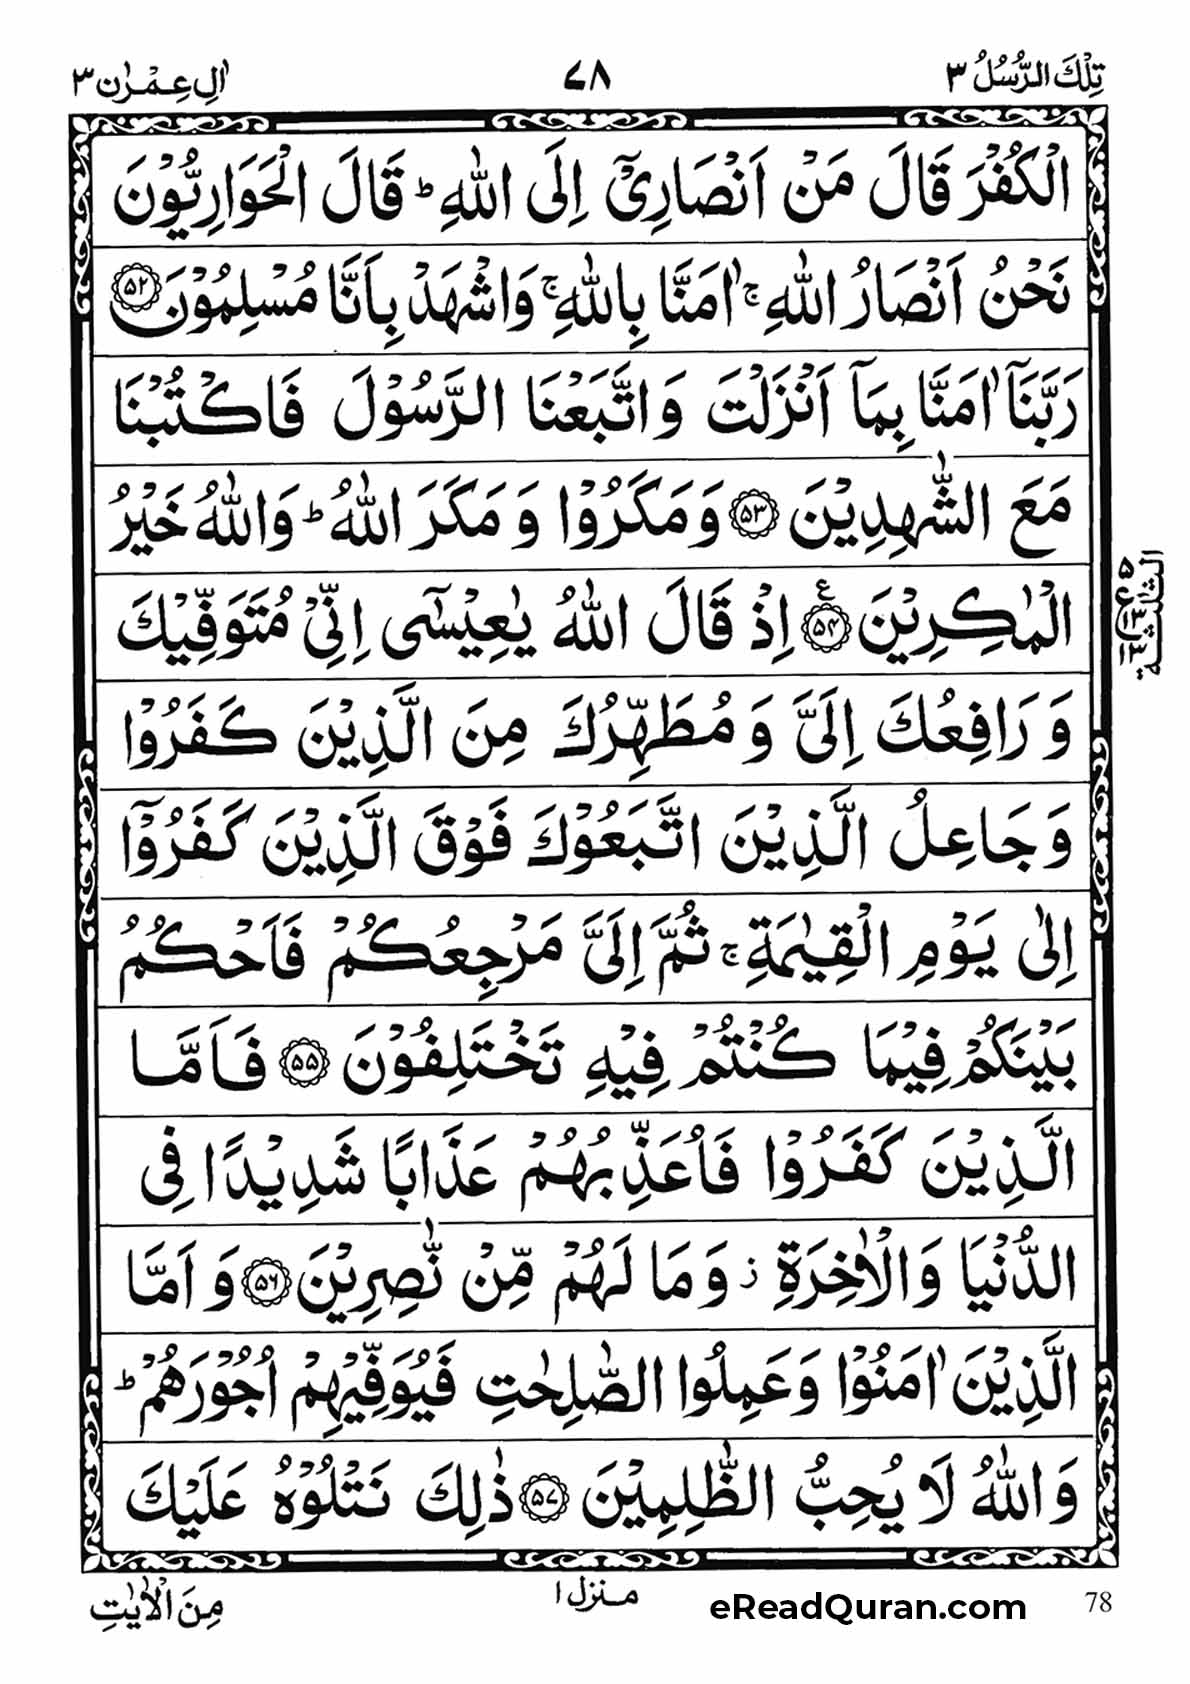 تِلْكَ الرُّسُلُ ٣
٧٨
اٰلِ عِمْرٰن ٣
الْكُفْرَ قَالَ مَنْ اَنْصَارِیْۤ اِلَی اللّٰهِ ؕ قَالَ الْحَوَارِیُّوْنَ
نَحْنُ اَنْصَارُ اللّٰهِ ۚ اٰمَنَّا بِاللّٰهِ ۚ وَاشْهَدْ بِاَنَّا مُسْلِمُوْنَ ﴿۵۲﴾
رَبَّنَاۤ اٰمَنَّا بِمَاۤ اَنْزَلْتَ وَاتَّبَعْنَا الرَّسُوْلَ فَاكْتُبْنَا
مَعَ الشّٰهِدِیْنَ ﴿۵۳﴾ وَمَكَرُوْا وَمَكَرَ اللّٰهُ ؕ وَاللّٰهُ خَیْرُ
الْمٰكِرِیْنَ ﴿۵۴﴾ ع اِذْ قَالَ اللّٰهُ یٰعِیْسٰۤی اِنِّیْ مُتَوَفِّیْكَ
وَرَافِعُكَ اِلَیَّ وَمُطَهِّرُكَ مِنَ الَّذِیْنَ كَفَرُوْا
وَجَاعِلُ الَّذِیْنَ اتَّبَعُوْكَ فَوْقَ الَّذِیْنَ كَفَرُوْۤا
اِلٰی یَوْمِ الْقِیٰمَةِ ۚ ثُمَّ اِلَیَّ مَرْجِعُكُمْ فَاَحْكُمُ
بَیْنَكُمْ فِیْمَا كُنْتُمْ فِیْهِ تَخْتَلِفُوْنَ ﴿۵۵﴾ فَاَمَّا
الَّذِیْنَ كَفَرُوْا فَاُعَذِّبُهُمْ عَذَابًا شَدِیْدًا فِی
الدُّنْیَا وَالْاٰخِرَةِ ز وَمَا لَهُمْ مِّنْ نّٰصِرِیْنَ ﴿۵۶﴾ وَاَمَّا
الَّذِیْنَ اٰمَنُوْا وَعَمِلُوا الصّٰلِحٰتِ فَیُوَفِّیْهِمْ اُجُوْرَهُمْ ؕ
وَاللّٰهُ لَا یُحِبُّ الظّٰلِمِیْنَ ﴿۵۷﴾ ذٰلِكَ نَتْلُوْهُ عَلَیْكَ
الثلثة
۵
ع
۱۳
۱۳
مِنَ الْاٰیٰتِ
منزل ١
eReadQuran.com
78